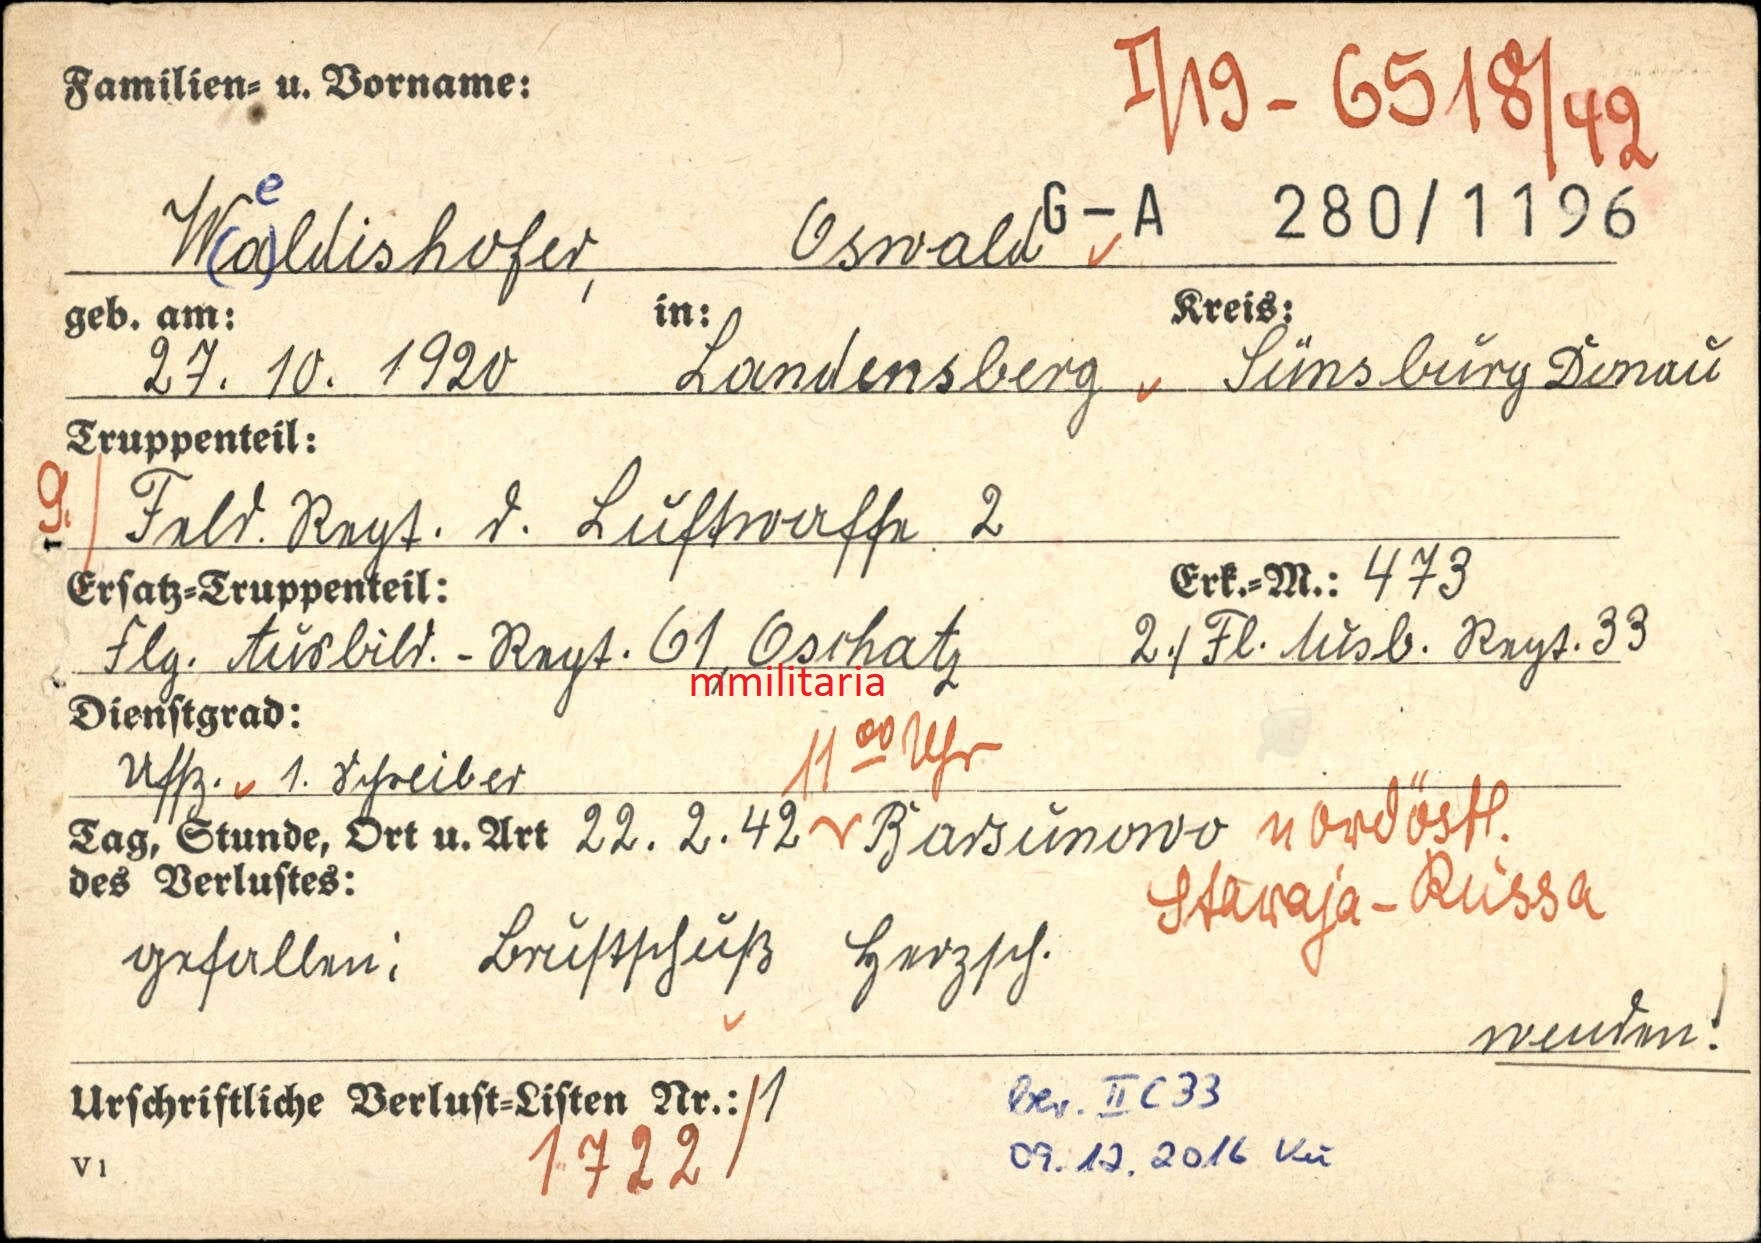 Familien- u. Vorname:
I/19 - 6518/42
e
W(a)ldishofer, Oswald G-A 280/1196
geb. am: in: Kreis:
27. 10. 1920 Landensberg, Günsburg Donau
Truppenteil:
9./ Feld. Regt. d. Luftwaffe 2
Ersatz-Truppenteil: Erk.-M.: 473
Flg. Ausbild. - Regt. 61, Oschatz 2./ Fl. Ausb. Regt. 33
mmilitaria
Dienstgrad:
Uffz. 1. Schreiber 11 00 Uhr
Tag, Stunde, Ort u. Art 22. 2. 42 Barsunowo nordöstl.
des Verlustes: Staraja-Russa
gefallen; Brustschuß Herzsch.
wenden!
Urschriftliche Verlust-Listen Nr.: /1
1722
ber. II C 33
V 1
09.12.2016 Kü